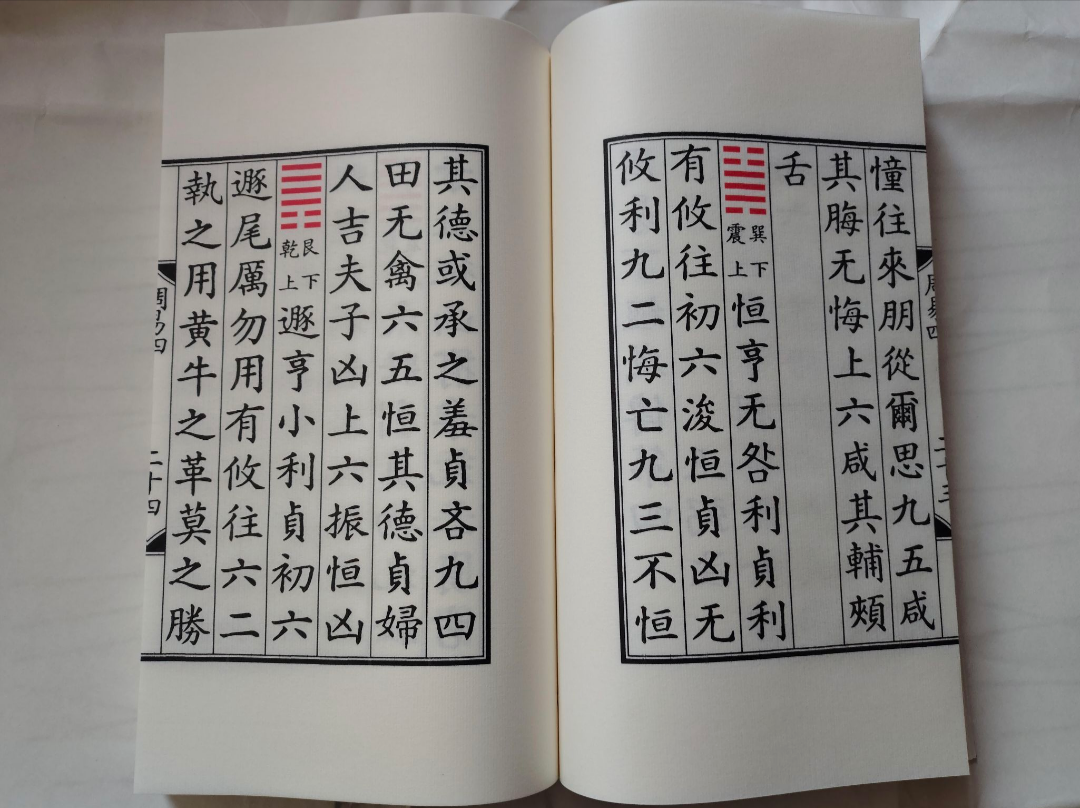 周易四
二十三
憧往來朋從爾思九五咸
其脢无悔上六咸其輔頰
舌
巽下
震上
恒亨无咎利貞利
有攸往初六浚恒貞凶无
攸利九二悔亡九三不恒
其德或承之羞貞吝九四
田无禽六五恒其德貞婦
人吉夫子凶上六振恒凶
艮下
乾上
遯亨小利貞初六
遯尾厲勿用有攸往六二
執之用黄牛之革莫之勝
周易四
二十四